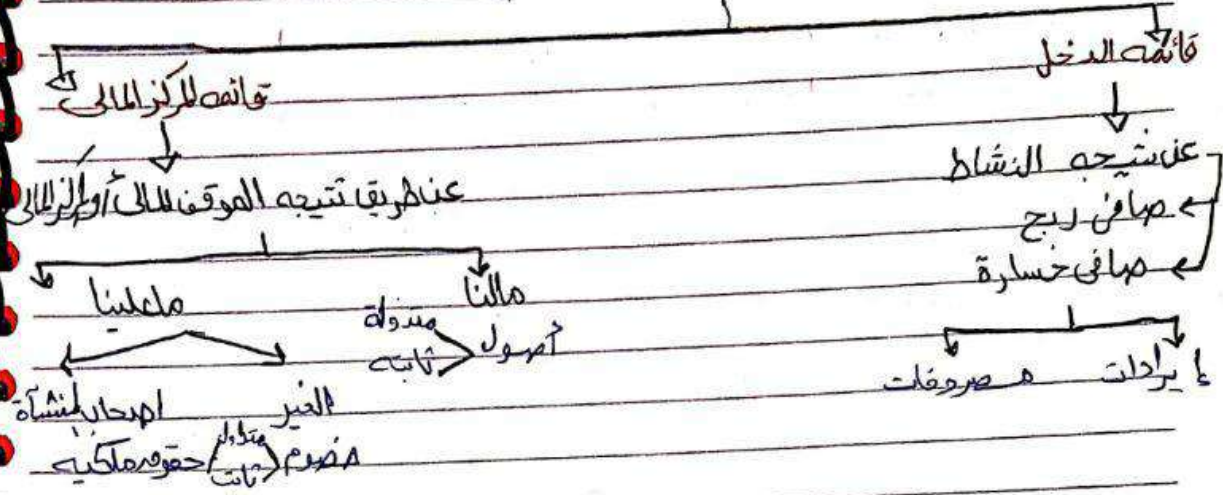 قائمه الدخل
عن نتيجه النشاط
صافى ربح
صافى خسارة
إيرادات مصروفات
قائمه المركز المالى
عن طريقا نتيجه الموقف المالى أو المركز المالى
مالنا ماعلينا
أصول متدولة ثابته
الغير اصحاب المنشأة
خصوم متداول ثابت حقوق ملكيه